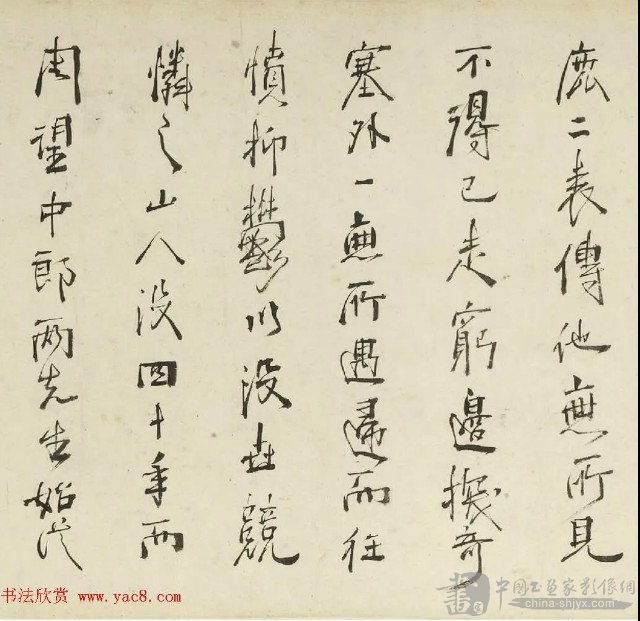 鹿二表傳他無所見
不得已走窮邊探奇
塞外一無所遇歸而往
憤抑鬱以没世競
憐之山人没四十年而
周望中郎兩先生始從
书法欣赏 www.yac8.com
中国书画家影像網
china-shjyx.com